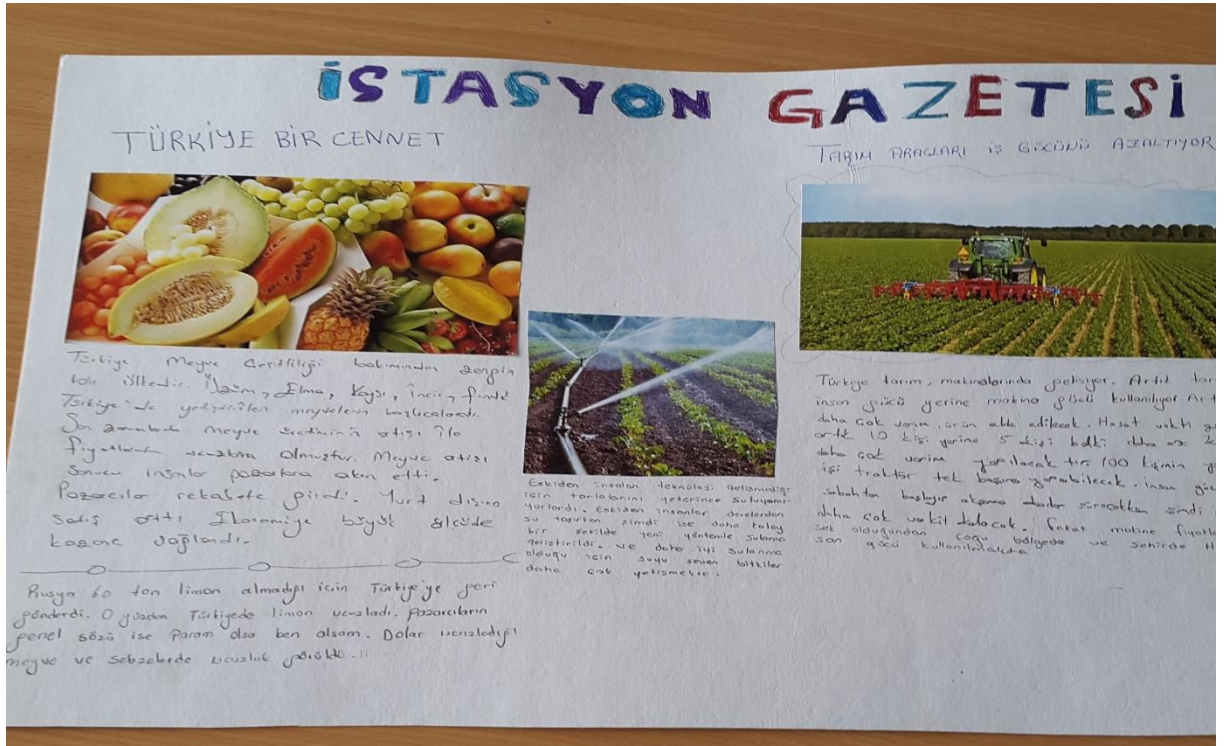 İSTASYON GAZETESİ
TÜRKİYE BİR CENNET
Türkiye Meyve Çeşitliliği bakımından zengin
bir ülkedir. Üzüm, Elma, Kayısı, İncir, fındık
Türkiye'de yetiştirilen meyvelerin başlıcalarıdır.
Son zamanlarda meyve üretiminin artışı ile
fiyatlarda ucuzlama olmuştur. Meyve artışı
Sonucu insanlar pazarlara akın etti.
Pazarcılar rekabete girdi. Yurt dışına
satış arttı Ekonomiye büyük ölçüde
kazanç sağlandı.
Rusya 60 ton limon almadığı için Türkiye'ye geri
gönderdi. O yüzden Türkiyede limon ucuzladı. Pazarcıların
genel sözü ise Param olsa ben alsam. Dolar ucuzladığı
meyve ve sebzelerde ucuzluk görüldü.!!
Eskiden insanlar teknoloji gelişmediği
için tarlalarını yeterince sulayamı-
yorlardı. Eskiden insanlar derelerden
su taşırken şimdi ise daha kolay
bir şekilde yeni yöntemle sulama
geliştirildi. ve daha iyi sulanma
olduğu için suyu seven bitkiler
daha çok yetişmekte.
TARIM ARAÇLARI İŞ GÜCÜNÜ AZALTIYOR
Türkiye tarım, makinalarında gelişiyor. Artık
insan gücü yerine makina gücü kullanılıyor.
daha çok verim, ürün elde edilecek. Hasat vakti
artık 10 kişi yerine 5 kişi belki daha az
daha çok verim yapılacak 100 kişinin
işi traktör tek başına yapabilecek. insan
sabahtan başlayıp akşama kadar sürecekken şimdi
daha çok vakit kalacak. fakat makine
sek olduğundan çoğu bölgede ve şehirde
san gücü kullanılmakta